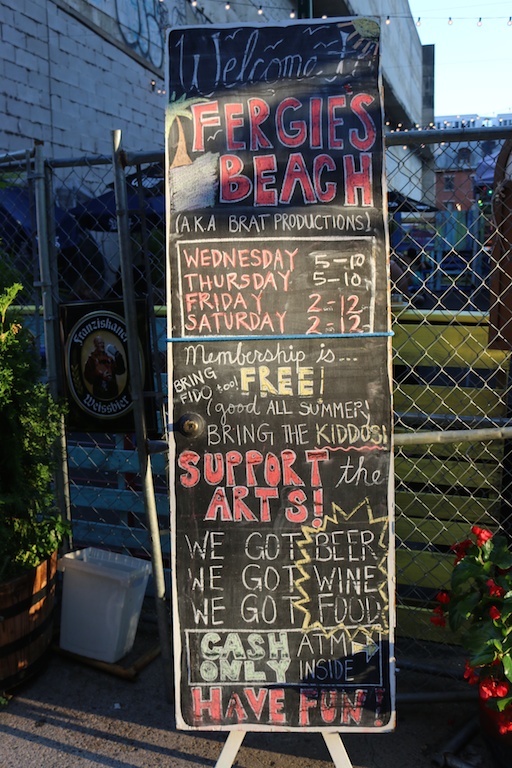 Welcome to
FERGIES
BEACH
(A.K.A BRAT PRODUCTIONS)
WEDNESDAY 5-10
THURSDAY 5-10
FRIDAY 2-12
SATURDAY 2-12
Membership is...
BRING FIDO too! FREE!
(good ALL SUMMER)
BRING THE KIDDOS!
SUPPORT the
ARTS!
WE GOT BEER
WE GOT WINE
WE GOT FOOD
CASH ONLY ATM INSIDE
HAVE FUN!
Franziskaner
Weissbier